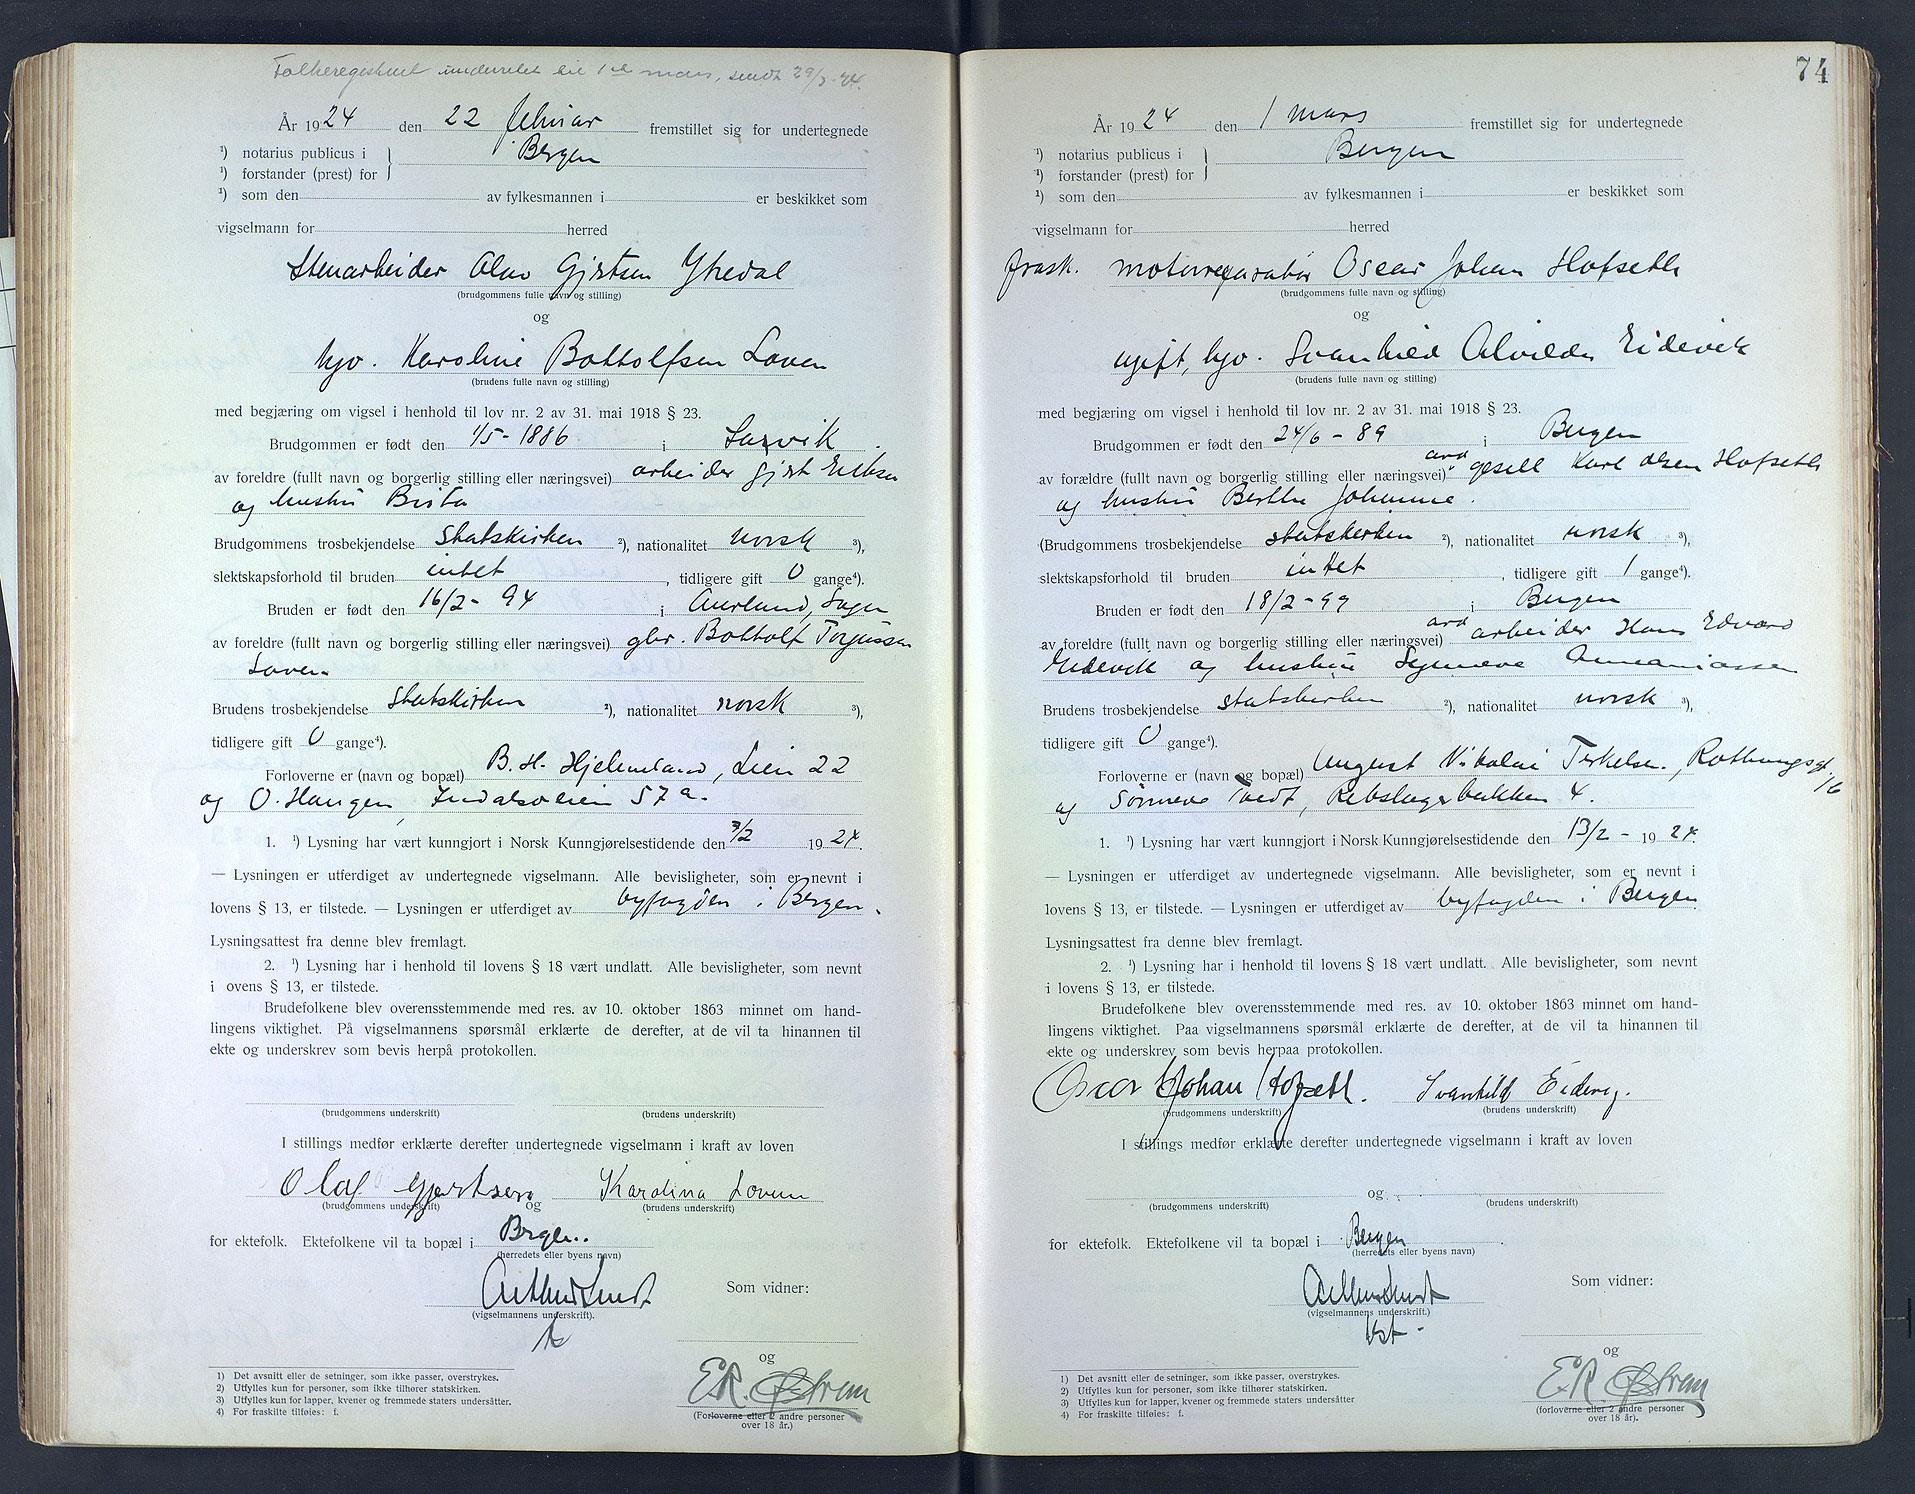 Folkeregisteret underrettet til 1ste mars, sendt 29/3-24.
År 1924 den 22 februar fremstillet sig for undertegnede
¹) notarius publicus i Bergen
¹) forstander (prest) for
¹) som den av fylkesmannen i er beskikket som
vigselmann for herred
Stenarbeider Olav Gjertsen Ytredal
(brudgommens fulle navn og stilling)
og
hjv. Karoline Bottolfsen Loven
(brudens fulle navn og stilling)
med begjæring om vigsel i henhold til lov nr. 2 av 31. mai 1918 § 23.
Brudgommen er født den 1/5-1886 i Larvik
av foreldre (fullt navn og borgerlig stilling eller næringsvei) arbeider Gjert Eriksen
og hustru Brita
Brudgommens trosbekjendelse statskirken ²), nationalitet norsk ³),
slektskapsforhold til bruden intet, tidligere gift 0 gange⁴).
Bruden er født den 16/2-94 i Aurland, Sogn
av foreldre (fullt navn og borgerlig stilling eller næringsvei) gbr. Bottolf Torgussen
Loven
Brudens trosbekjendelse statskirken ²), nationalitet norsk ³),
tidligere gift 0 gange⁴).
Forloverne er (navn og bopæl) B. H. Hjelmeland, Lien 22
og O. Haugen, Indalsveien 57a.
1. ¹) Lysning har vært kunngjort i Norsk Kunngjørelsestidende den 7/2 1924.
— Lysningen er utferdiget av undertegnede vigselmann. Alle bevisligheter, som er nevnt i
lovens § 13, er tilstede. — Lysningen er utferdiget av byfogden i Bergen.
Lysningsattest fra denne blev fremlagt.
2. ¹) Lysning har i henhold til lovens § 18 vært undlatt. Alle bevisligheter, som nevnt
i ovens § 13, er tilstede.
Brudefolkene blev overensstemmende med res. av 10. oktober 1863 minnet om hand-
lingens viktighet. På vigselmannens spørsmål erklærte de derefter, at de vil ta hinannen til
ekte og underskrev som bevis herpå protokollen.
(brudgommens underskrift) (brudens underskrift)
I stillings medfør erklærte derefter undertegnede vigselmann i kraft av loven
Olaf Gjertsen Karolina Loven
(brudgommens underskrift) og (brudens underskrift)
for ektefolk. Ektefolkene vil ta bopæl i Bergen.
(herredets eller byens navn)
Som vidner:
(vigselmannens underskrift).
og
E. R. Østrem
(Forloverne eller 2 andre personer
over 18 år.)
1) Det avsnitt eller de setninger, som ikke passer, overstrykes.
2) Utfylles kun for personer, som ikke tilhører statskirken.
3) Utfylles kun for lapper, kvener og fremmede staters undersåtter.
4) For fraskilte tilføies: f.
74
År 1924 den 1 mars fremstillet sig for undertegnede
¹) notarius publicus i Bergen
¹) forstander (prest) for
¹) som den av fylkesmannen i er beskikket som
vigselmann for herred
frask. motorreparatør Oscar Johan Hofseth
(brudgommens fulle navn og stilling)
og
ugift, hjv. Svanhild Alvilda Eidevik
(brudens fulle navn og stilling)
med begjæring om vigsel i henhold til lov nr. 2 av 31. mai 1918 § 23.
Brudgommen er født den 24/6-89 i Bergen
av forældre (fullt navn og borgerlig stilling eller næringsvei) gesell Karl Olsen Hofseth
og hustru Berthe Johanne.
(Brudgommens trosbekjendelse statskirken ²), nationalitet norsk ³),
slektskapsforhold til bruden intet, tidligere gift 1 gange⁴).
Bruden er født den 18/2-99 i Bergen
av foreldre (fullt navn og borgerlig stilling eller næringsvei) arbeider Hans Edvard
Eidevik og hustru Synneve Annaniassen
Brudens trosbekjendelse statskirken ²), nationalitet norsk ³),
tidligere gift 0 gange⁴).
Forloverne er (navn og bopæl) August Nikolai Terkelsen, Rothaugsgt. 16
og Sønneve Tvedt, Rebslagerbakken 4.
1. ¹) Lysning har vært kunngjort i Norsk Kunngjørelsestidende den 13/2-1924.
— Lysningen er utferdiget av undertegnede vigselmann. Alle bevisligheter, som er nevnt i
lovens § 13, er tilstede. — Lysningen er utferdiget av byfogden i Bergen
Lysningsattest fra denne blev fremlagt.
2. ¹) Lysning har i henhold til lovens § 18 vært undlatt. Alle bevisligheter, som nevnt
i lovens § 13, er tilstede.
Brudefolkene blev overensstemmende med res. av 10. oktober 1863 minnet om hand-
lingens viktighet. Paa vigselmannens spørsmål erklærte de derefter, at de vil ta hinannen til
ekte og underskrev som bevis herpaa protokollen.
Oscar Johan Hofseth. Svanhild Eidevig.
(brudgommens underskrift) (brudens underskrift)
I stillings medfør erklærte derefter undertegnede vigselmann i kraft av loven
og
(brudgommens underskrift) (brudens underskrift)
for ektefolk. Ektefolkene vil ta bopæl i Bergen
(herredets eller byens navn)
Som vidner:
(vigselmannens underskrift.)
og
E R Østrem
(forloverne eller 2 andre personer
over 18 år).
1) Det avsnitt eller de setninger, som ikke passer, overstrykes.
2) Utfylles kun for personer, som ikke tilhører statskirken.
3) Utfylles kun for lapper, kvener og fremmede staters undersåtter
4) For fraskilte tilføies: f.